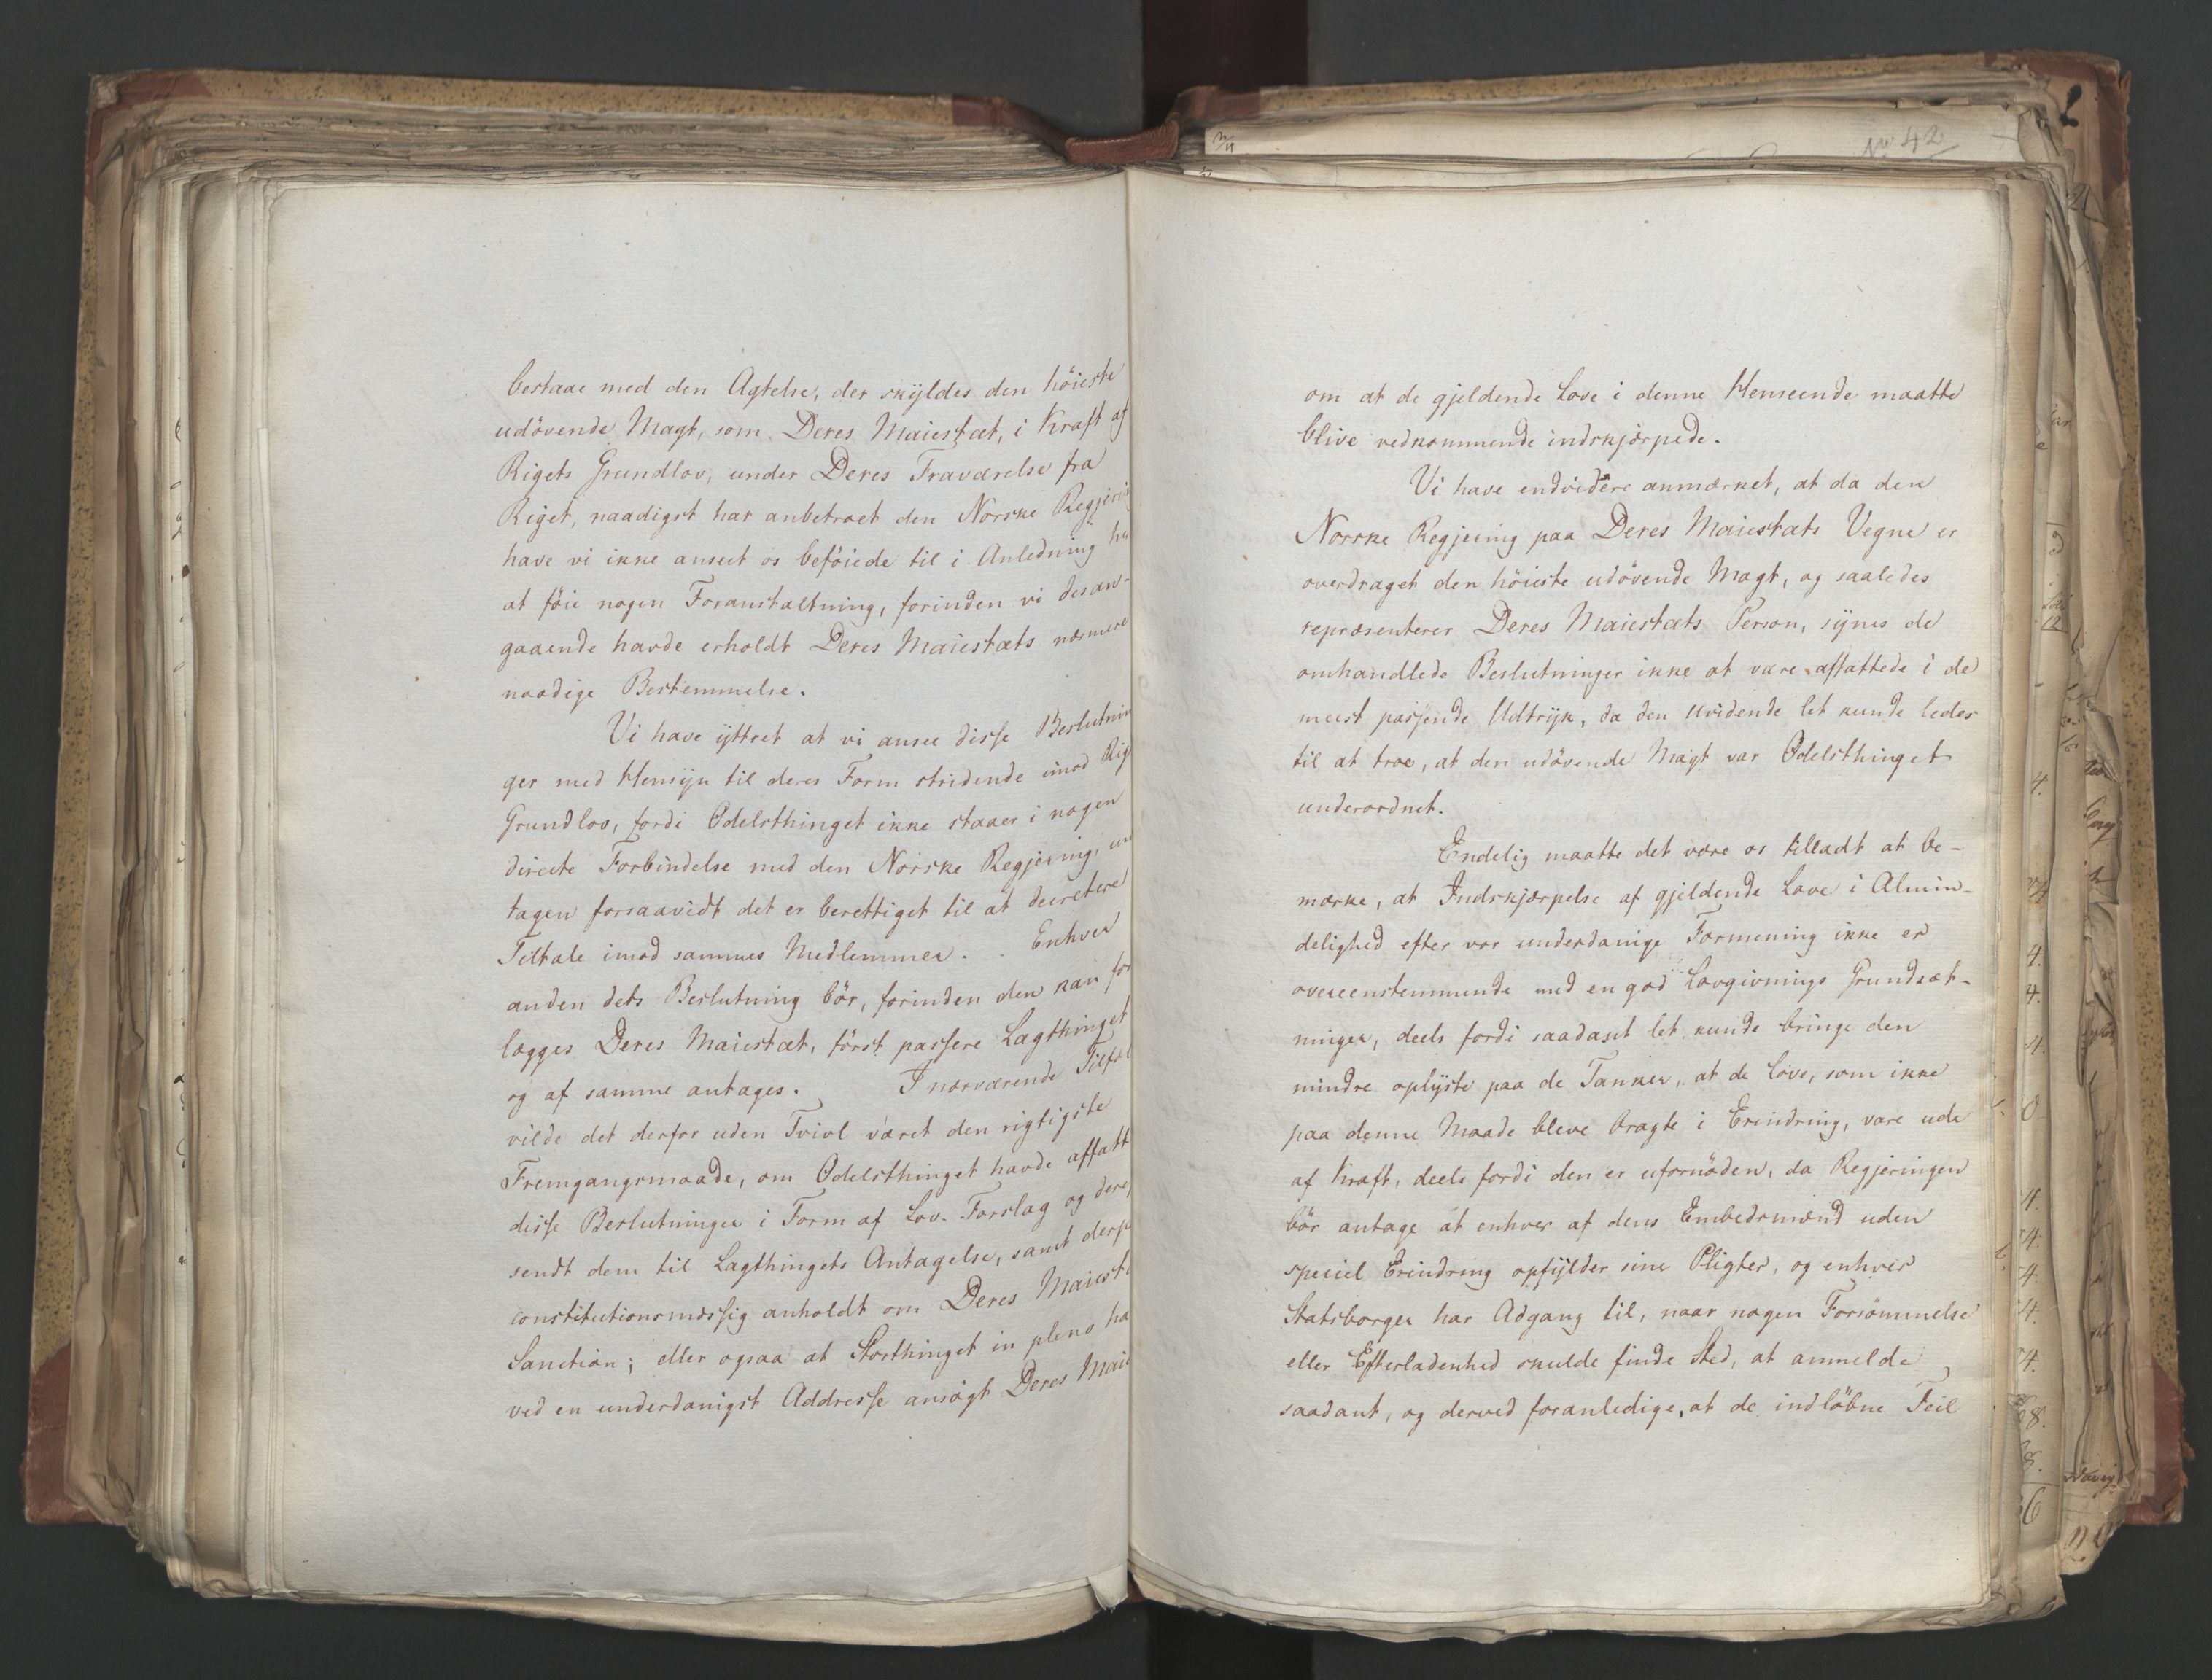 bestaae med den Agtelse, der skÿldes den höieste
udövende Magt, som Deres Maiestæt, i Kraft af
Rigets Grundlov, under Deres Fraværelse fra
Riget, naadigst har anbetroet den Norske Regjeri
have vi ikke anseet os beföiede til i Anledning he
at föie nogen Foranstaltning, forinden vi desan-
gaaende havde erholdt Deres Maiestæts nærmere
naadige Bestemmelse.
Vi have ÿttret at vi ansee disse Beslutnin
ger med Hensÿn til deres Form stridende imod Rig
Grundlov, fordi Odelsthinget ikke staaer i nogen
directe Forbindelse med den Norske Regjering, un
tagen forsaavidt det er berettiget til at decretere
Tiltale imod sammes Medlemmer. Enhver
anden dets Beslutning bör, forinden den kan for
lægges Deres Maiestæt, först passere Lagthinget
og af samme antages. I nærværende Tilfæl
vilde det derfor uden Tvivl været den rigtigste
Fremgangsmaade, om Odelsthinget havde affatt
disse Beslutninger i Form af Lov-Forslag og deref
sendt dem til Lagthingets Antagelse, samt derp
constitutionsmæssig anholdt om Deres Maiestæ
Sanction; eller ogsaa at Storthinget in pleno ha
ved en underdanigst Addresse ansögt Deres Maie
N<sup>o</sup> 42
om at de gjeldende Love i denne Henseende maatte
blive vedkommende indskjærpede.
Vi have endvidere anmærket, at da den
Norske Regjering paa Deres Maiestæts Vegne er
overdraget den höieste udövende Magt, og saaledes
repræsenterer Deres Maiestæts Person, sÿnes de
omhandlede Beslutninger ikke at være affattede i de
meest passende Udtrÿk, da den uvidende let kunde ledes
til at troe, at den udövende Magt var Odelsthinget
underordnet.
Endelig maatte det være os tilladt at be-
mærke, at Indskjærpelse af gjeldende Love i Almin-
delighed efter vor underdanige Formening ikke er
overeenstemmende med en god Lovgivnings Grundsæt-
ninger, deels fordi saadant let kunde bringe den
mindre oplÿste paa de Tanker, at de Love, som ikke
paa denne Maade bleve bragte i Erindring, vare ude
af Kraft, deels fordi den er ufornöden, da Regjeringen
bör antage at enhver af dens Embedsmænd uden
speciel Erindring opfÿlder sine Pligter, og enhver
Statsborger har Adgang til, naar nogen Forsömmelse
eller Efterladenhed skulde finde Sted, at anmelde
saadant, og derved foranledige, at de indlöbne Feil